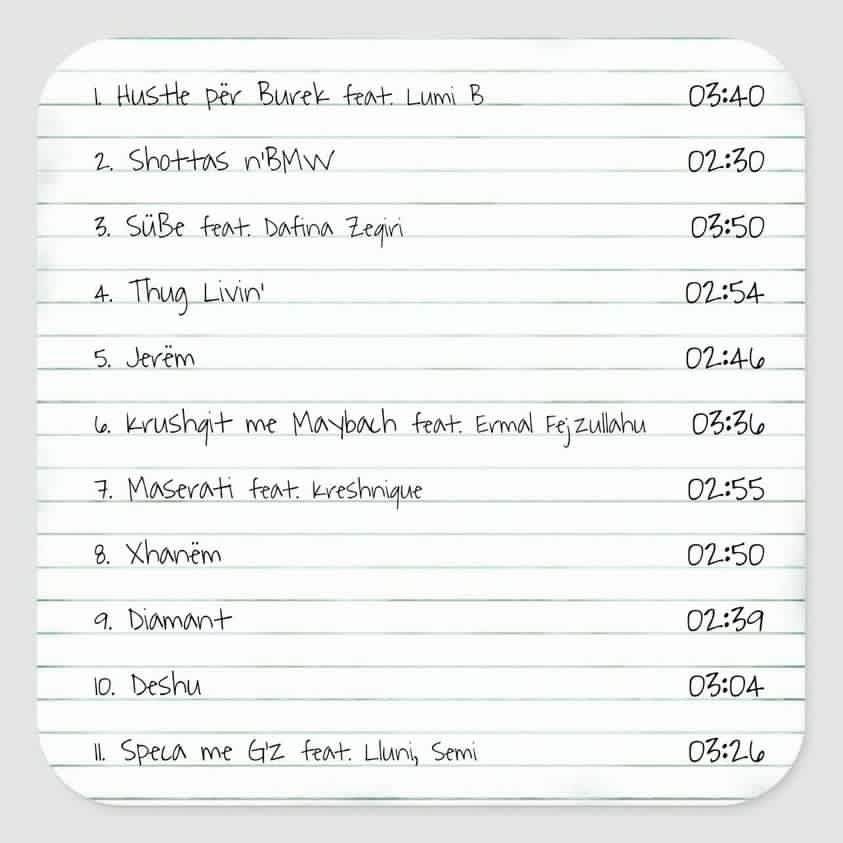 1. Hustle për Burek feat. Lumi B 03:40
2. Shottas n'BMW 02:30
3. SüBe feat. Dafina Zeqiri 03:50
4. Thug Livin' 02:54
5. Jerëm 02:46
6. Krushqit me Maybach feat. Ermal Fejzullahu 03:36
7. Maserati feat. Kreshnique 02:55
8. Xhanëm 02:50
9. Diamant 02:39
10. Deshu 03:04
11. Speca me G'z feat. Lluni, Semi 03:26